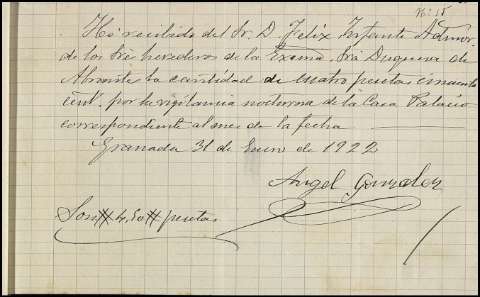 Nº 15
He recibido del Sr. D. Felix Infante Admor.
de los Sres herederos de la Excma. Sra Duquesa de
Abrante la cantidad de cuatro pesetas cincuenta
cent. por la vigilancia nocturna de la Casa Palacio
correspondiente al mes de la fecha
Granada 31 de Enero de 1922
Angel Gonzalez
Son # 4,50 # pesetas